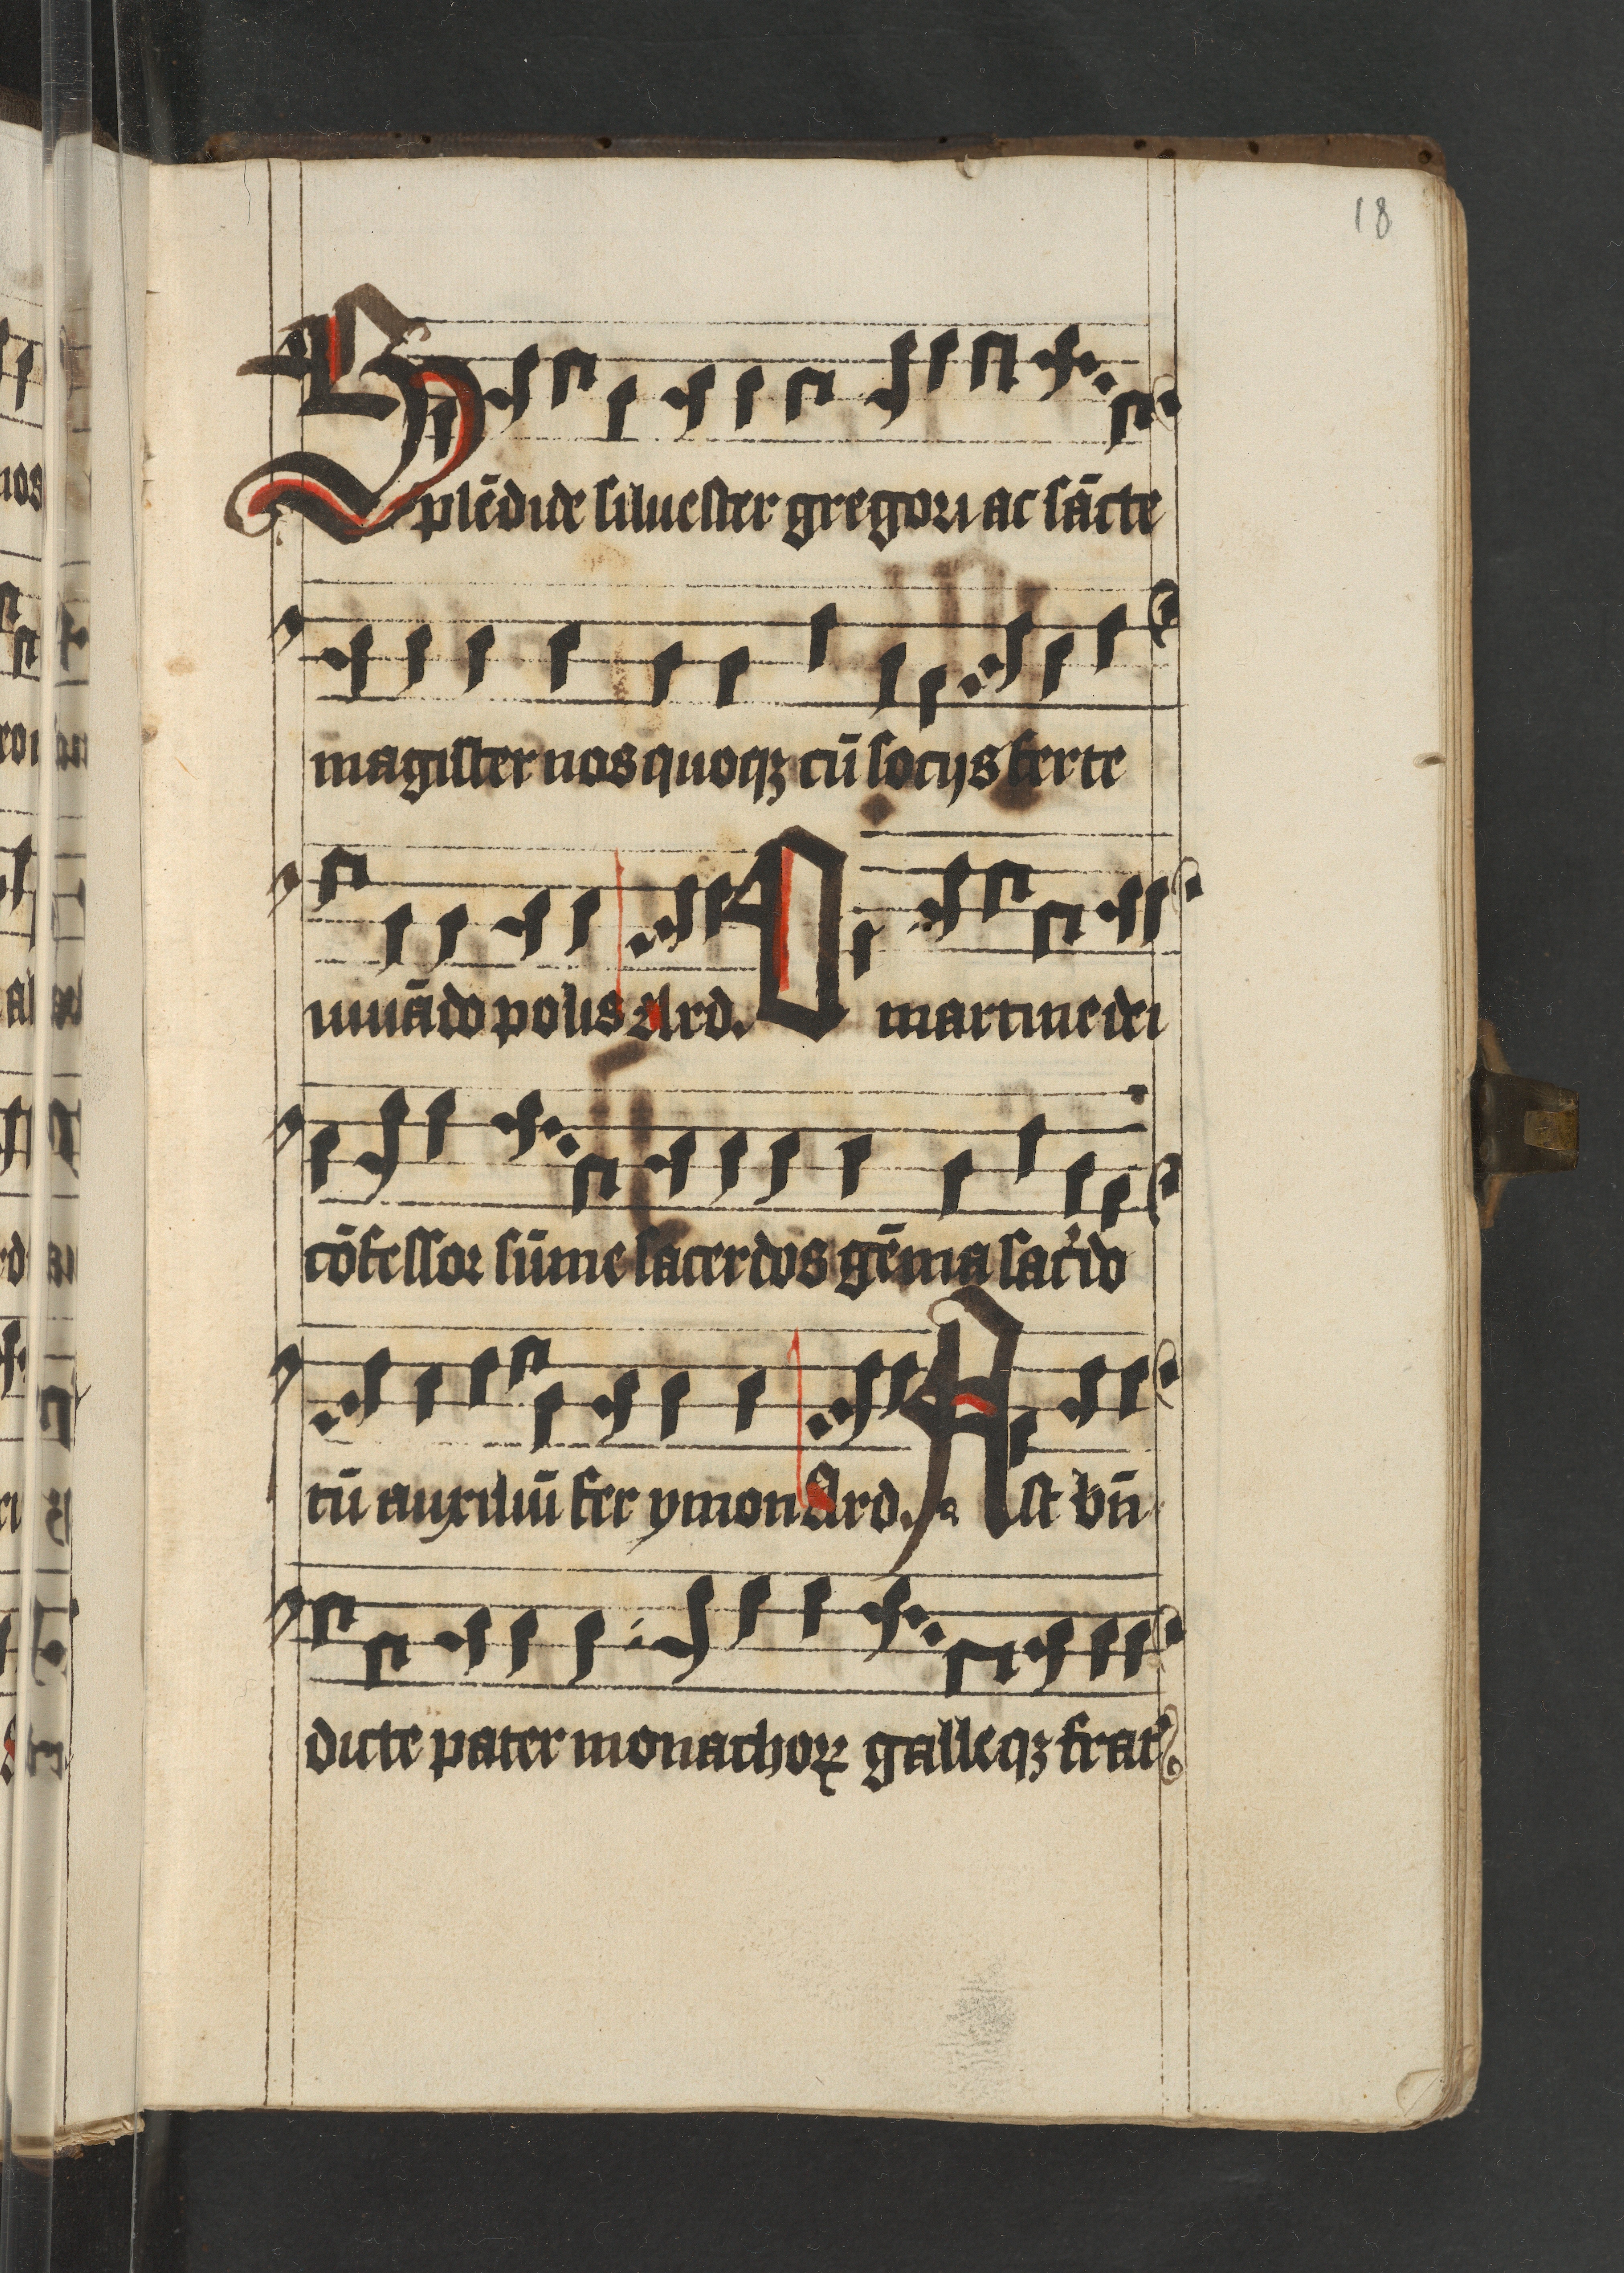 18
Splēdide siluester gregori ac sācte
magister nos quoqꝫ cū socijs ferte
iuuādo polis Ard. O martine dei
cōfessor sūme sacerdos gēma sac̓do
tū auxiliū fer ymon Ard. Ast bn̄
dicte pater monachoꝝ galleqꝫ frat̓